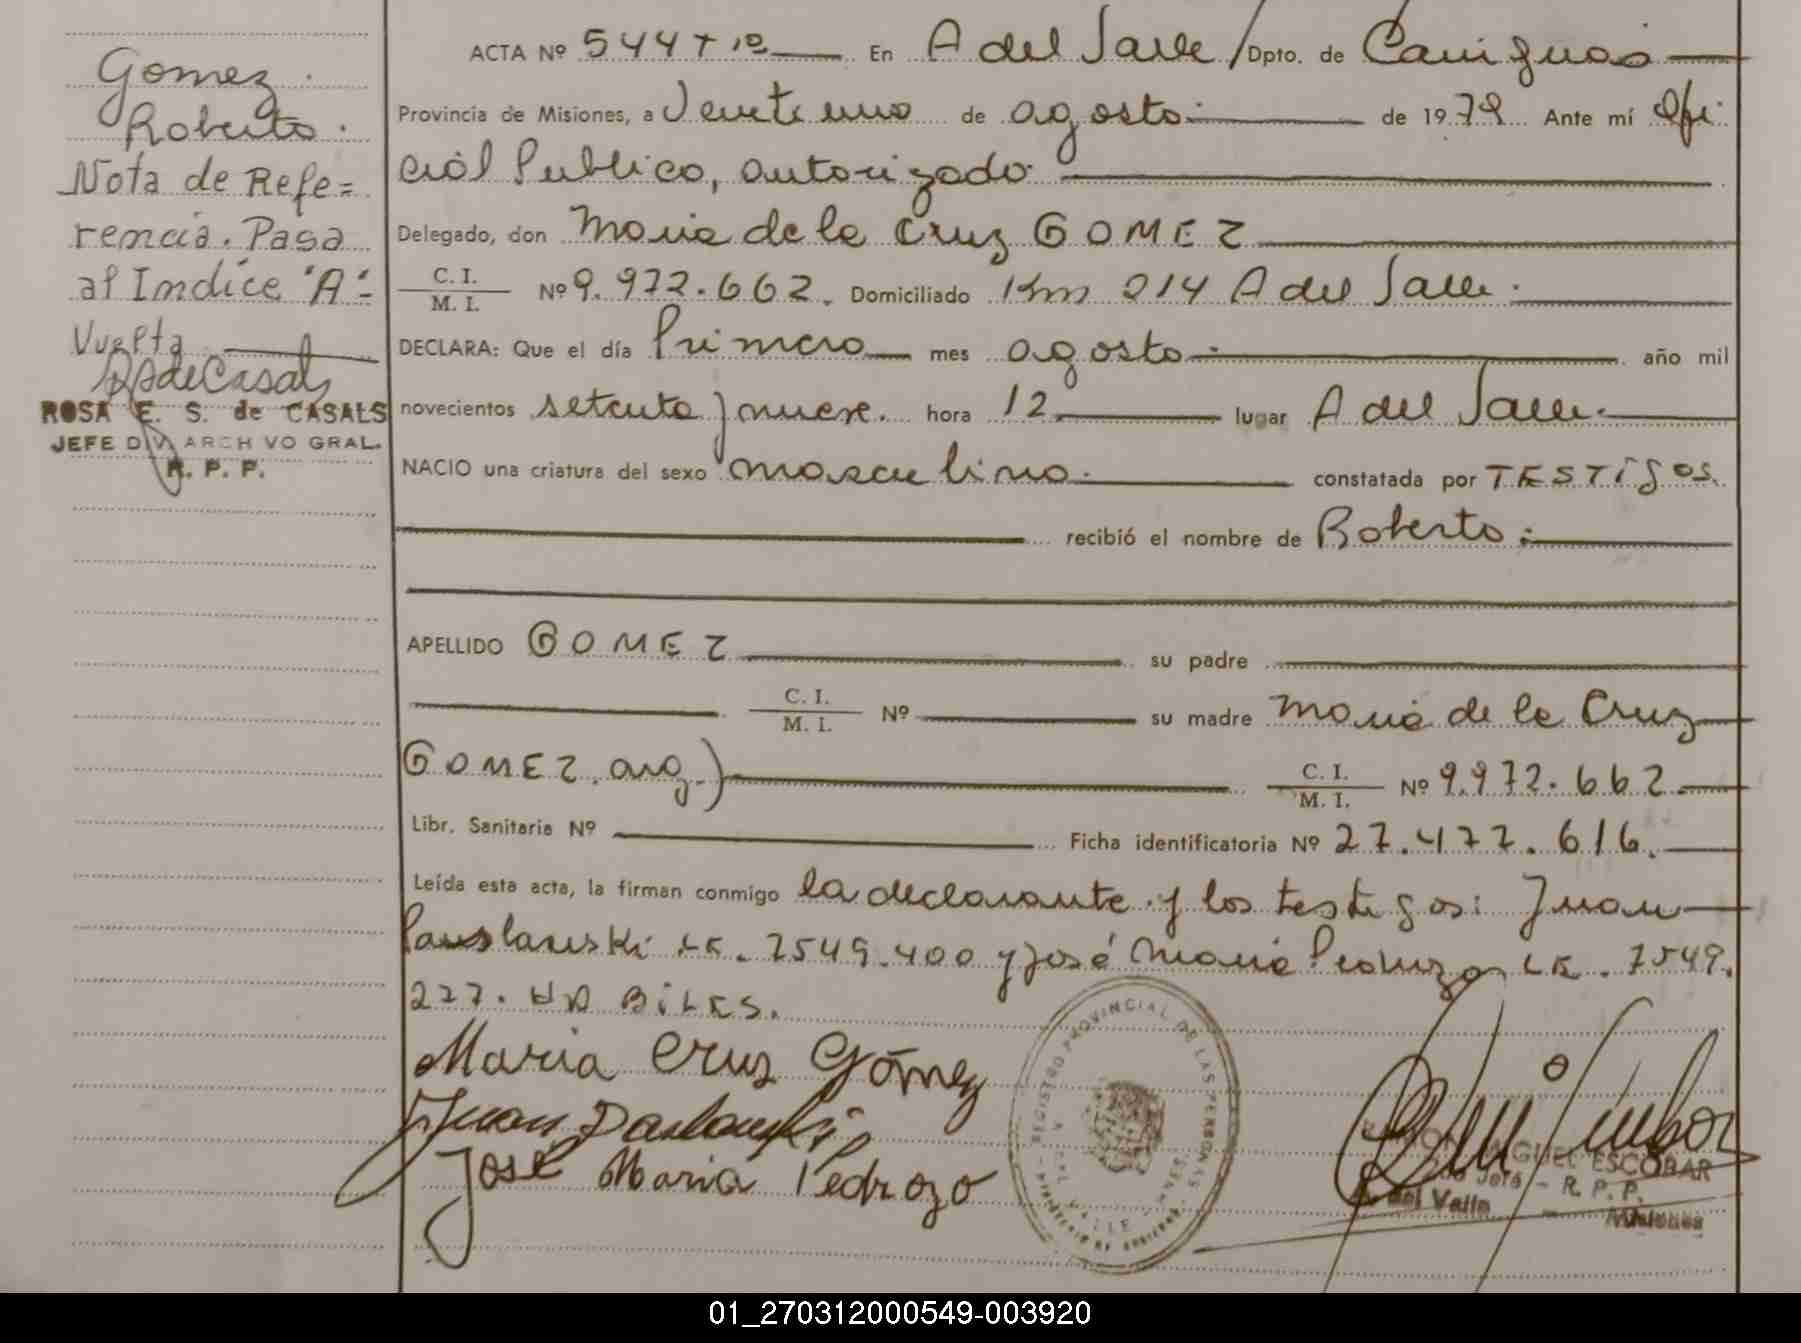 Gomez
Roberto.
Nota de Refe=
rencia. Pasa
al Indice "A"-
Vuelta
RSdeCasals
ROSA E. S. de CASALS
JEFE DIV. ARCHIVO GRAL.
R. P. P.
ACTA Nº 544 Tº En A del Valle / Dpto. de Cainguas
Provincia de Misiones, a Veinte uno de agosto de 1979 Ante mí Ofi
cial Publico, autorizado
Delegado, don Maria de la Cruz GOMEZ
C. I. / M. I. Nº 9.972.662. Domiciliado Km 214 A del Valle.
DECLARA: Que el día Primero mes agosto año mil
novecientos setenta y nueve. hora 12 lugar A del Valle.
NACIO una criatura del sexo masculino. constatada por TESTIGOS.
recibió el nombre de Roberto:
APELLIDO GOMEZ su padre
C. I. / M. I. Nº su madre Maria de la Cruz
GOMEZ. arg.) C. I. / M. I. Nº 9.972.662.
Libr. Sanitaria Nº Ficha identificatoria Nº 27.477.616.
Leída esta acta, la firman conmigo la declarante y los testigos: Juan
LE. 7549.400 y José Maria Pedrozo LE. 7549.
227. HABILES.
Maria Cruz Gómez
Juan
José Maria Pedrozo
REGISTRO PROVINCIAL DE LAS PERSONAS
RAMON MIGUEL ESCOBAR
Jefe - R. P. P.
A. del Valle - Misiones
01_270312000549-003920